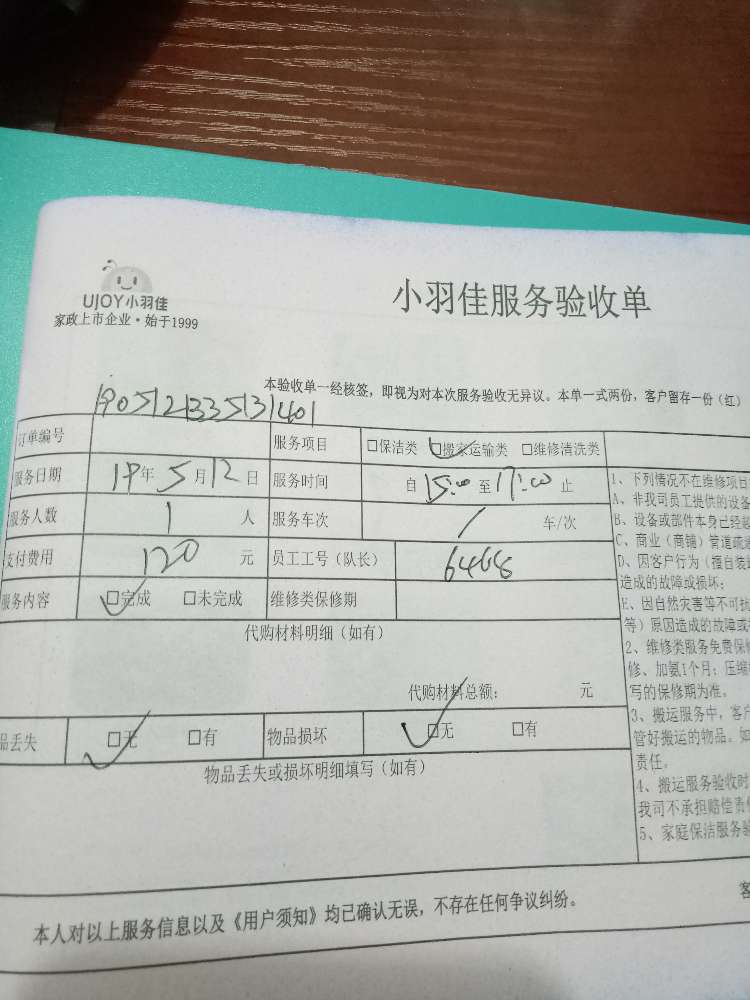 UJOY小羽佳
家政上市企业·始于1999
小羽佳服务验收单
本验收单一经核签，即视为对本次服务验收无异议。本单一式两份，客户留存一份（红）
1905121335131401
订单编号 服务项目 □保洁类 □搬家运输类 □维修清洗类
服务日期 19年5月12日 服务时间 自15:00至17:00止
服务人数 1人 服务车次 / 车/次
支付费用 120元 员工工号（队长） 6468
服务内容 □完成 □未完成 维修类保修期
代购材料明细（如有）
代购材料总额： 元
品丢失 □无 □有 物品损坏 □无 □有
物品丢失或损坏明细填写（如有）
1、下列情况不在维修项目
A、非我司员工提供的设备
B、设备或部件本身已经超
C、商业（商铺）管道疏通
D、因客户行为（擅自装
造成的故障或损坏；
E、因自然灾害等不可抗
等）原因造成的故障或
2、维修类服务免费保修
修、加氨1个月；压缩
写的保修期为准。
3、搬运服务中，客户
管好搬运的物品。如
责任。
4、搬运服务验收时
我司不承担赔偿责任
5、家庭保洁服务验
本人对以上服务信息以及《用户须知》均已确认无误，不存在任何争议纠纷。
客